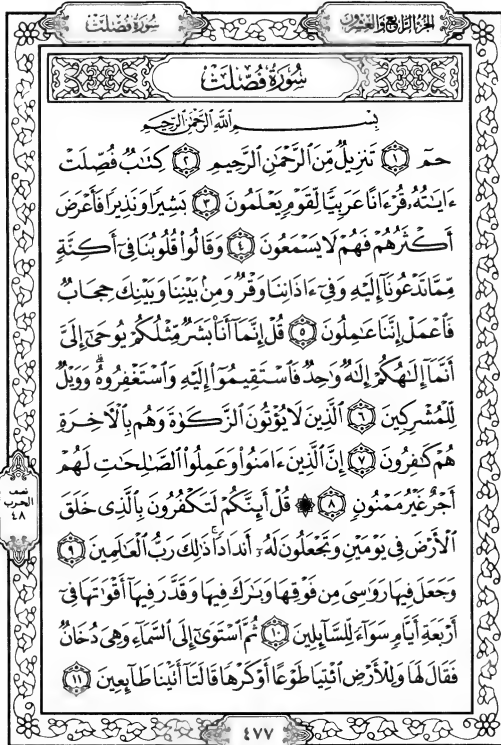 سُورَةُ فُصِّلَتْ
الجُزْءُ الرَّابِعُ وَالعِشْرُونَ
سُورَةُ فُصِّلَتْ
بِسْمِ اللَّهِ الرَّحْمَٰنِ الرَّحِيمِ
حمٓ ١ تَنزِيلٌ مِّنَ الرَّحْمَٰنِ الرَّحِيمِ ٢ كِتَابٌ فُصِّلَتْ
ءَايَاتُهُۥ قُرْءَانًا عَرَبِيًّا لِّقَوْمٍ يَعْلَمُونَ ٣ بَشِيرًا وَنَذِيرًا فَأَعْرَضَ
أَكْثَرُهُمْ فَهُمْ لَا يَسْمَعُونَ ٤ وَقَالُوا قُلُوبُنَا فِىٓ أَكِنَّةٍ
مِّمَّا تَدْعُونَآ إِلَيْهِ وَفِىٓ ءَاذَانِنَا وَقْرٌ وَمِنۢ بَيْنِنَا وَبَيْنِكَ حِجَابٌ
فَاعْمَلْ إِنَّنَا عَامِلُونَ ٥ قُلْ إِنَّمَآ أَنَا۠ بَشَرٌ مِّثْلُكُمْ يُوحَىٰٓ إِلَىَّ
أَنَّمَآ إِلَٰهُكُمْ إِلَٰهٌ وَاحِدٌ فَاسْتَقِيمُوٓا إِلَيْهِ وَاسْتَغْفِرُوهُ ۗ وَوَيْلٌ
لِّلْمُشْرِكِينَ ٦ الَّذِينَ لَا يُؤْتُونَ الزَّكَوٰةَ وَهُم بِالْآخِرَةِ
هُمْ كَافِرُونَ ٧ إِنَّ الَّذِينَ ءَامَنُوا وَعَمِلُوا الصَّالِحَاتِ لَهُمْ
أَجْرٌ غَيْرُ مَمْنُونٍ ٨ ۞ قُلْ أَئِنَّكُمْ لَتَكْفُرُونَ بِالَّذِى خَلَقَ
الْأَرْضَ فِى يَوْمَيْنِ وَتَجْعَلُونَ لَهُۥٓ أَندَادًا ۚ ذَٰلِكَ رَبُّ الْعَالَمِينَ ٩
وَجَعَلَ فِيهَا رَوَاسِىَ مِن فَوْقِهَا وَبَارَكَ فِيهَا وَقَدَّرَ فِيهَآ أَقْوَاتَهَا فِىٓ
أَرْبَعَةِ أَيَّامٍ سَوَآءً لِّلسَّآئِلِينَ ١٠ ثُمَّ اسْتَوَىٰٓ إِلَى السَّمَآءِ وَهِىَ دُخَانٌ
فَقَالَ لَهَا وَلِلْأَرْضِ ائْتِيَا طَوْعًا أَوْ كَرْهًا قَالَتَآ أَتَيْنَا طَآئِعِينَ ١١
نصف
الحزب
٤٨
٤٧٧